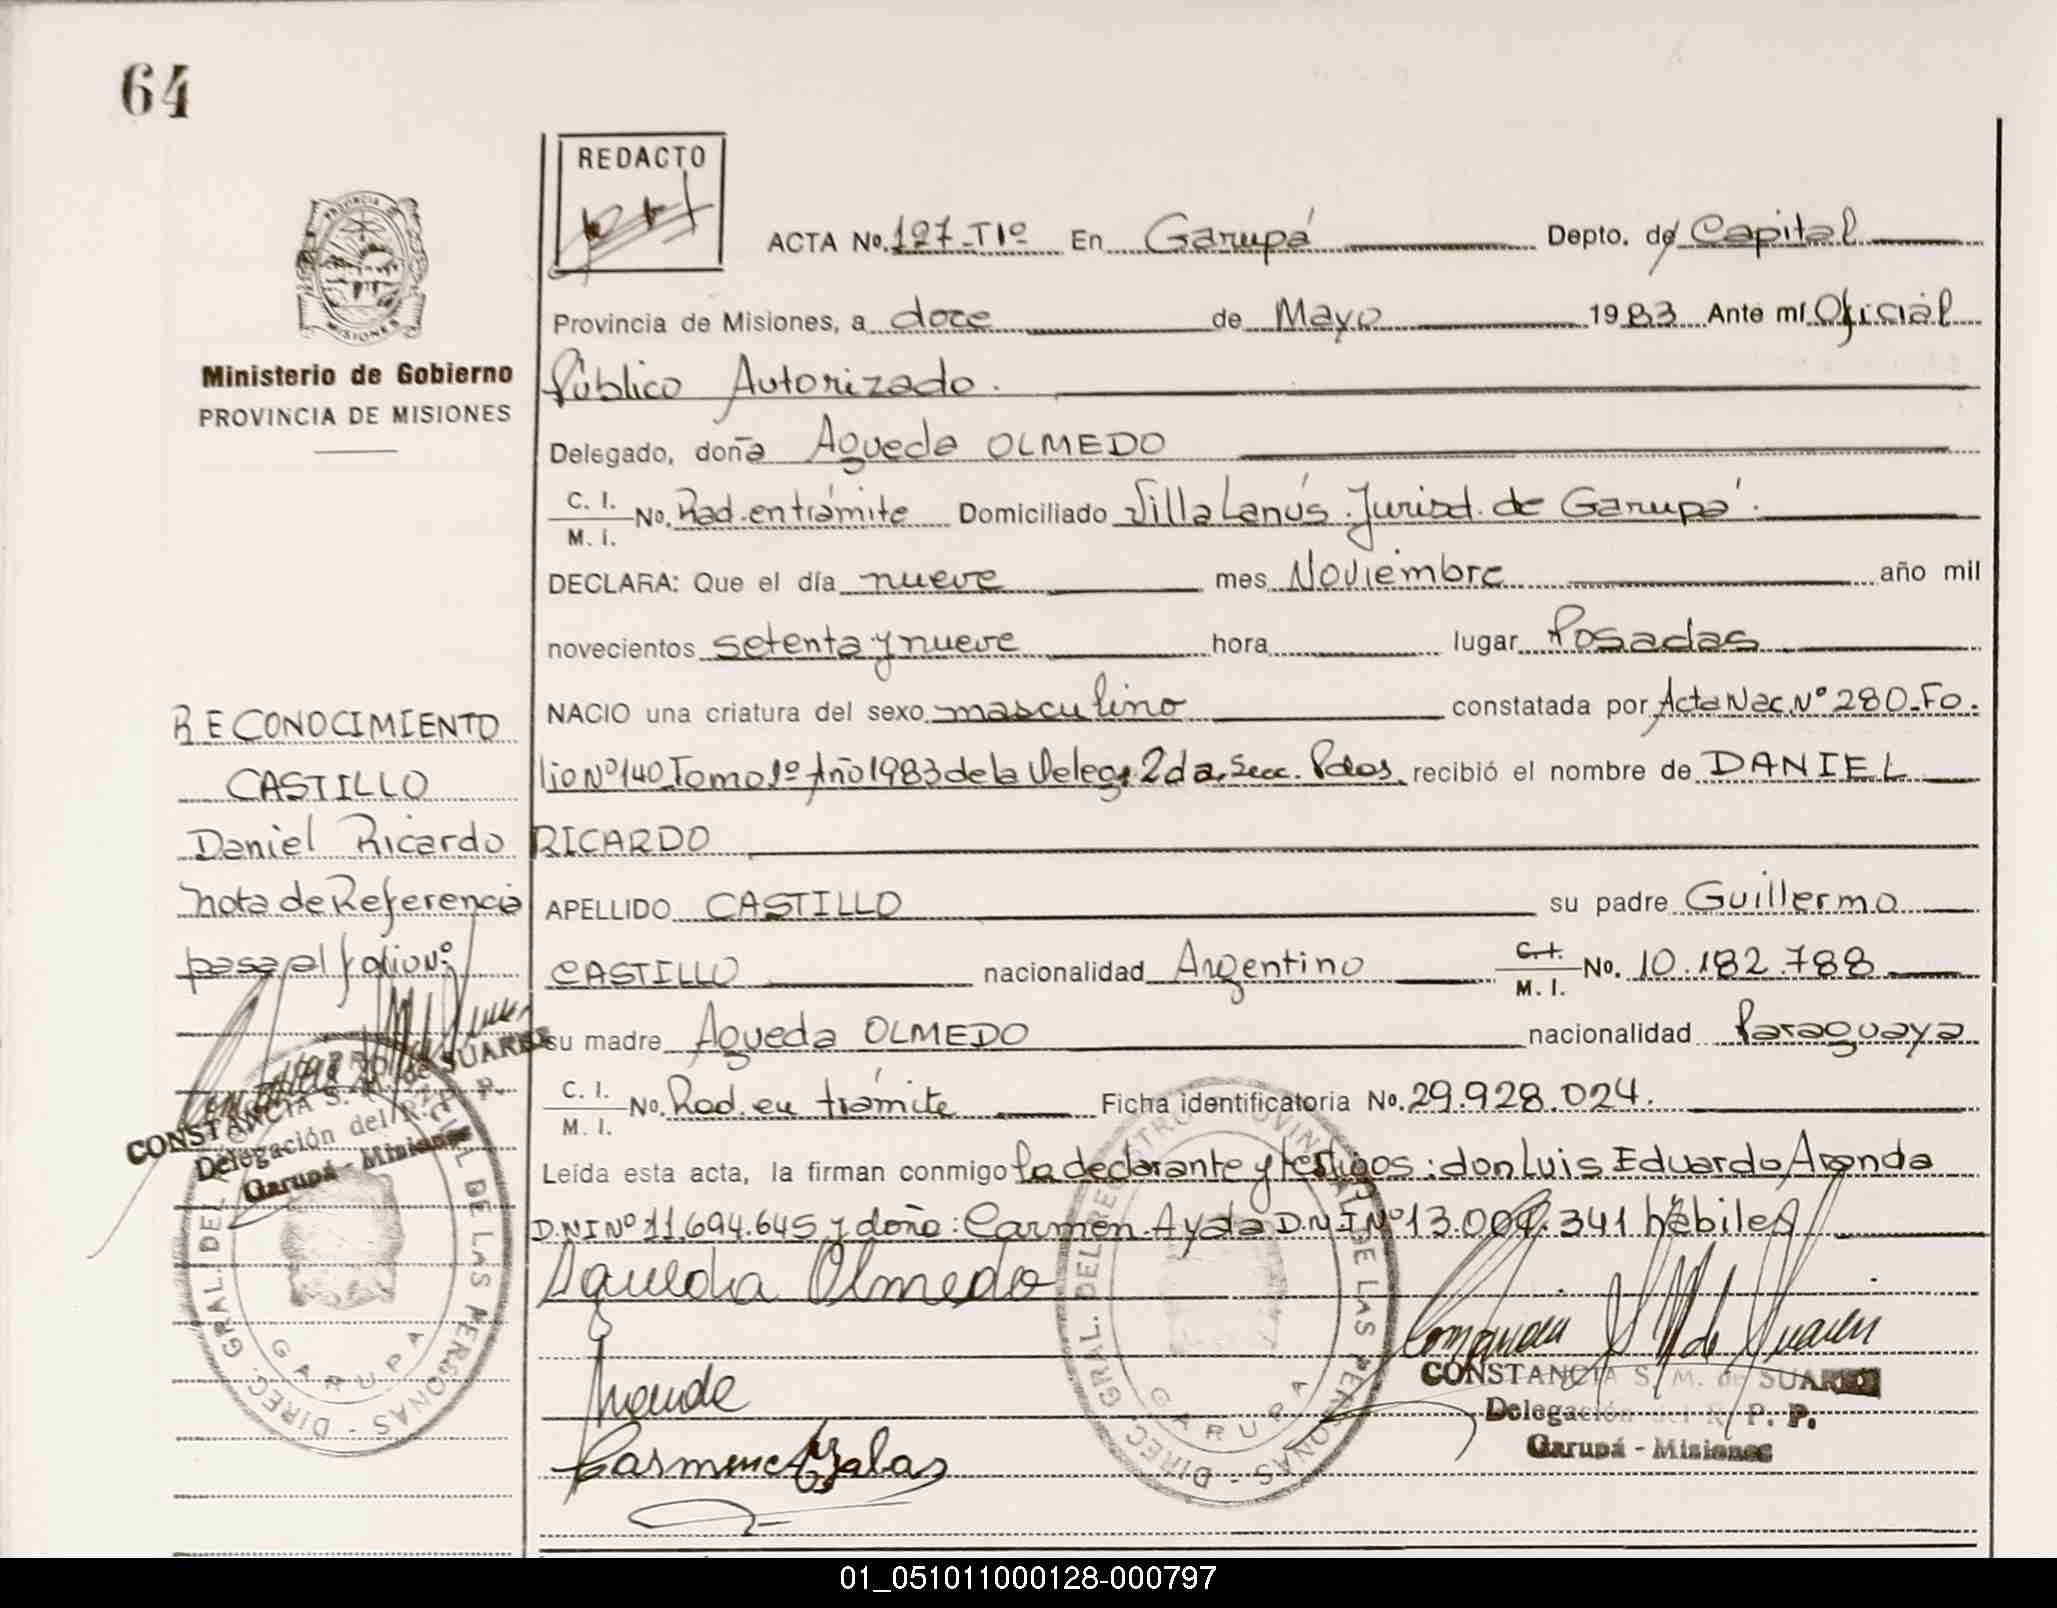 64
REDACTO
ACTA No. 127-T1º En Garupá Depto. de Capital
Provincia de Misiones, a doce de Mayo 1983 Ante mí Oficial
Ministerio de Gobierno
PROVINCIA DE MISIONES
Público Autorizado.
Delegado, doña Agueda OLMEDO
C. I.
M. I. No. Rad. en trámite Domiciliado Villa Lanús. Jurisd. de Garupá.
DECLARA: Que el día nueve mes Noviembre año mil
novecientos setenta y nueve hora lugar Posadas
NACIO una criatura del sexo masculino constatada por Acta Nac. Nº 280-Fo-
lio Nº 140 Tomo 1º Año 1983 de la Deleg. 2da. Secc. Pdas. recibió el nombre de DANIEL
RICARDO
APELLIDO CASTILLO su padre Guillermo
CASTILLO nacionalidad Argentino C. I.
M. I. No. 10.182.788
su madre Agueda OLMEDO nacionalidad Paraguaya
C. I.
M. I. No. Rad. en trámite Ficha identificatoria No. 29.928.024.
Leída esta acta, la firman conmigo la declarante y testigos: don Luis Eduardo Aranda
D.N.I Nº 11.694.645 y doña: Carmen Ayala D.N.I Nº 13.004.341 hábiles
Aguedia Olmedo
CONSTANCIA S. M. de SUAREZ
Delegación del R. P. P.
Garupá - Misiones
RECONOCIMIENTO
CASTILLO
Daniel Ricardo
nota de Referencia
pasa al folio Nº
CONSTANCIA S. M. de SUAREZ
Delegación del R. P. P.
Garupá - Misiones
DIREC. GRAL. DEL REGISTRO PROVINCIAL DE LAS PERSONAS
GARUPA
DIREC. GRAL. DEL REGISTRO PROVINCIAL DE LAS PERSONAS
GARUPA
01_051011000128-000797